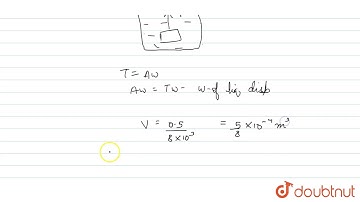 T = AW
AW = TW - W of liq disp
V = 0.5 / 8×10³ = 5/8 ×10⁻⁴ m³
doubtnut